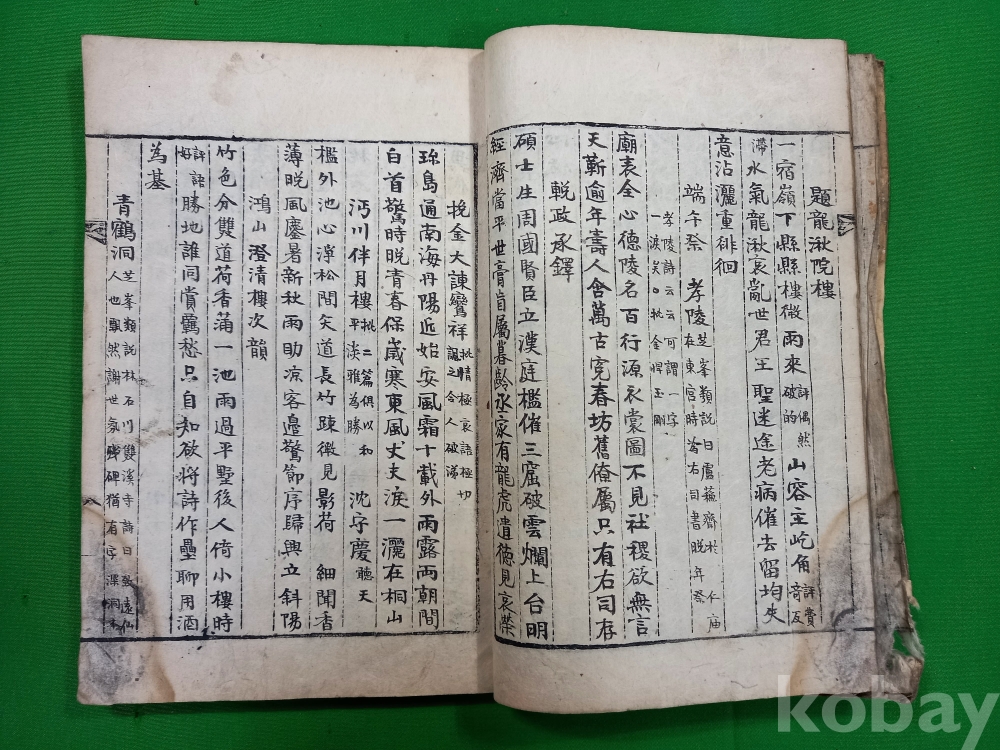 題龍湫院樓
一宿嶺下縣縣樓微雨來評偶然破的山容主屹角評費音反
滯水氣龍湫哀亂世君王聖迷途老病催去留均失
意沾灑重徘徊
端午祭孝陵芝峯類說曰盧蘓齋於仁庙在東宮時為右司書晚年祭
孝陵詩云云可謂一字一淚矣
廟表全心德陵名百行源衣裳圖不見社稷欲無言
天靳逾年壽人含萬古寃春坊舊僚屬只有右司存
輓政承鐸
碩士生周國賢臣立漢庭檻催三窟破雲爛上台明
經濟當平世膏肓屬暮齡承家有龍虎遺德見哀榮
挽金大諫鸞祥批情極哀語極切讀之令人破涕
珎島通南海丹陽近始安風霜十載外雨露兩朝間
白首驚時晚青春保歲寒東風丈丈淚一灑在桐山
沔川伴月樓批二篇俱以和平淡雅為勝沈字慶聽天
檻外池心淨松間矢道長竹踈微見影荷細聞香
薄晚風塵暑新秋雨助凉客邉驚節序歸興立斜陽
鴻山澄清樓次韻
竹色分雙道荷香蒲一池雨過平墅後人倚小樓時
評語好勝地誰同賞羈愁只自知欲將詩作壘聊用酒
為基
青鶴洞芝峯類説林石川雙溪寺詩曰致遠仙人也飄然謝世氛殘碑猶有字深洞
八
kobay